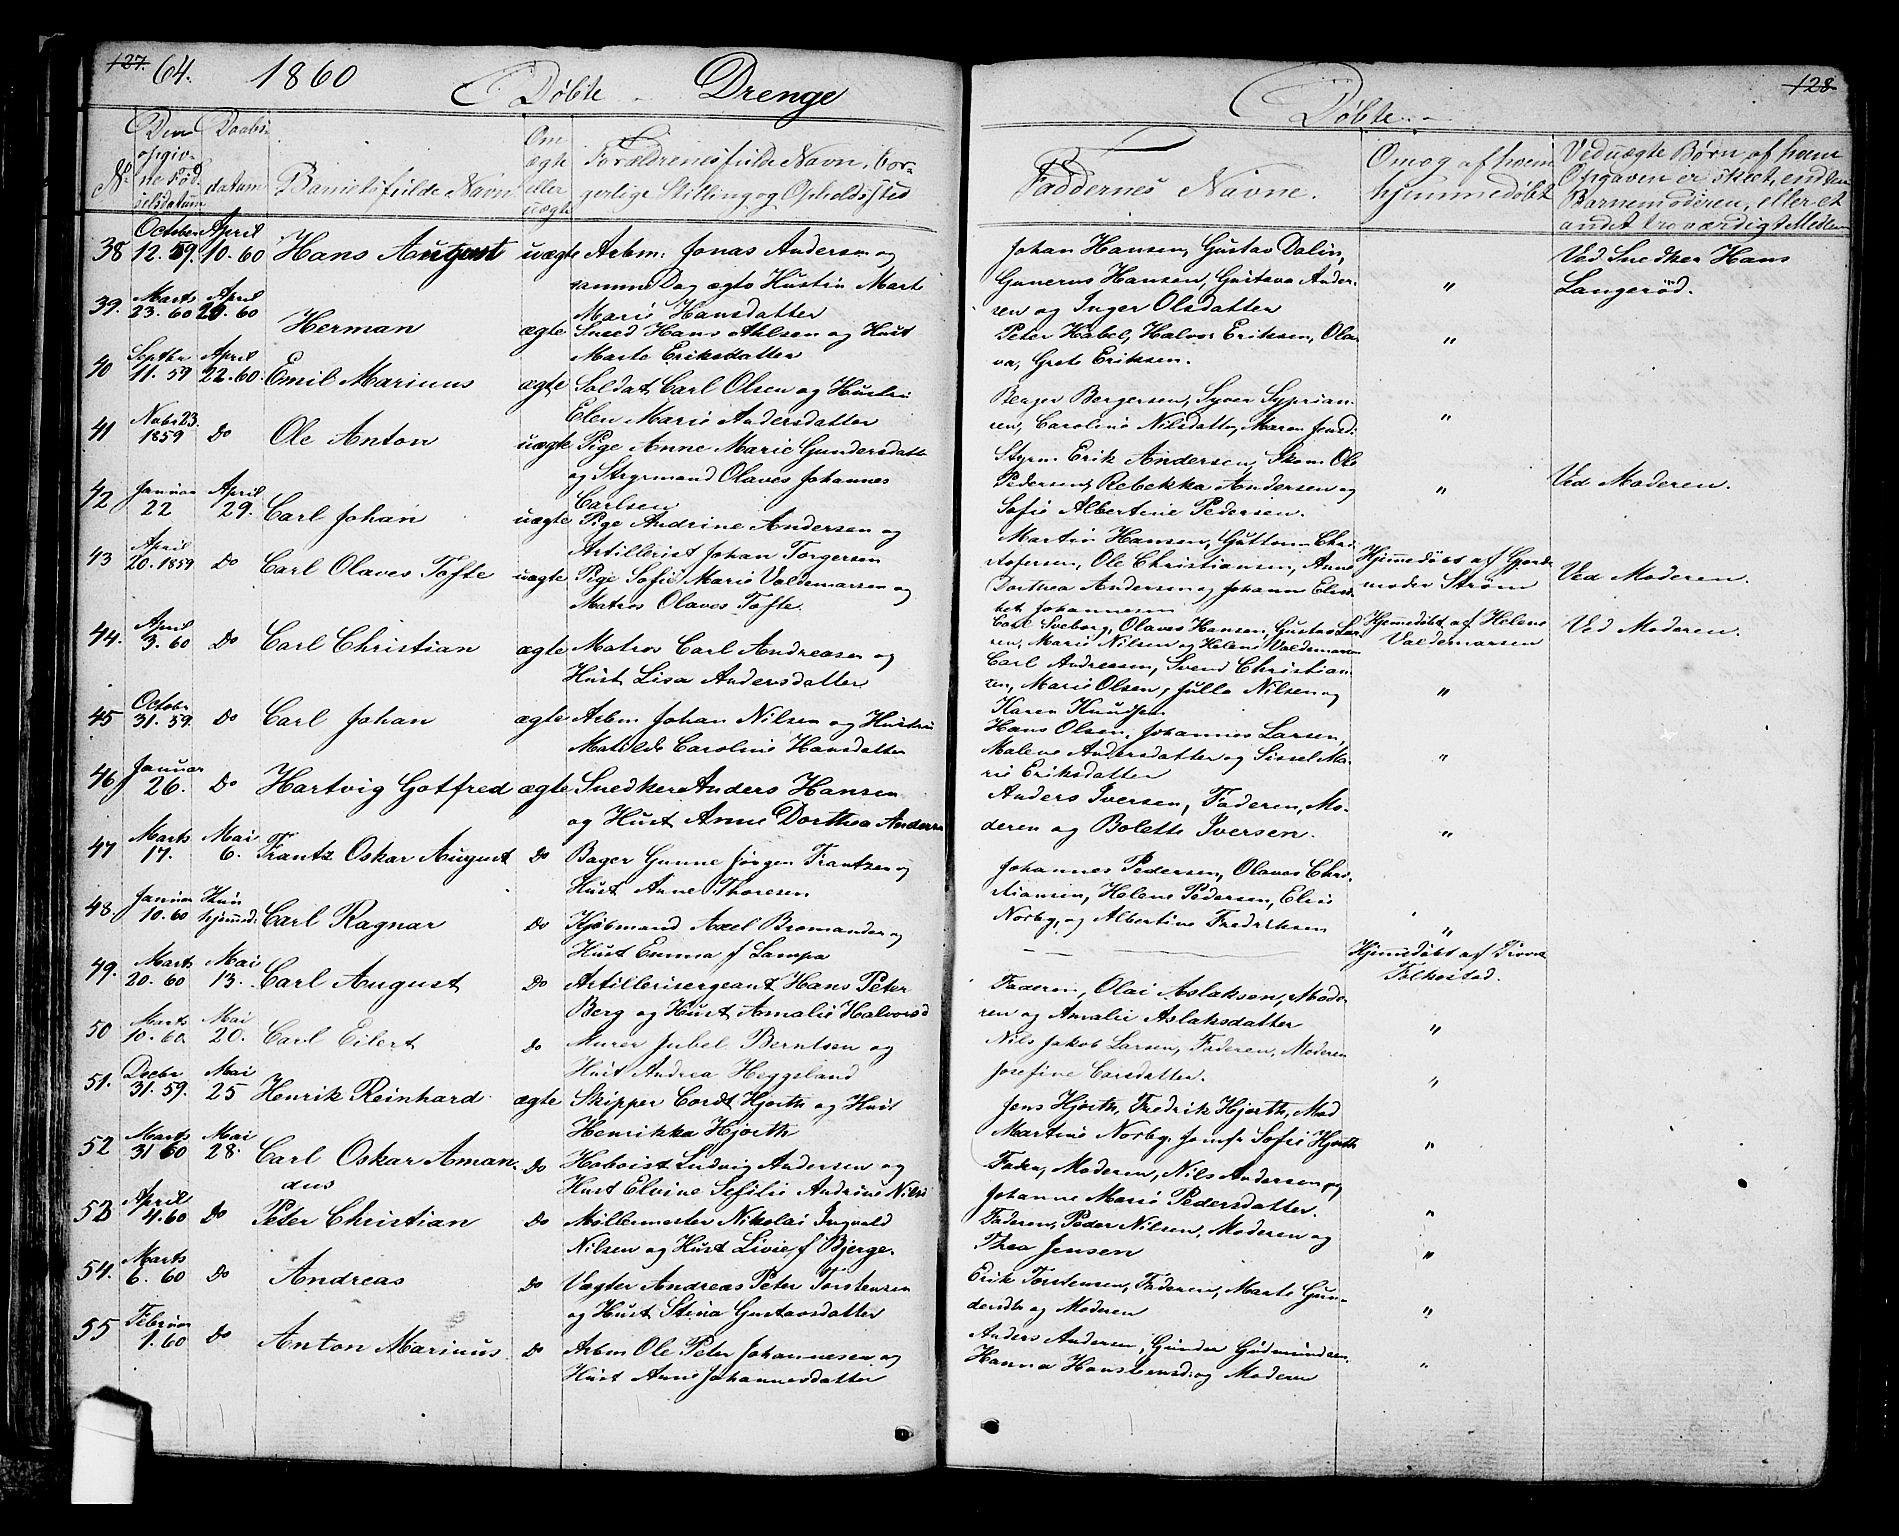 127. 64. 1860 Døbte - Drenge
No Den opgivne Fødselsdatum Daabsdatum Barnets fulde Navn Om ægte eller uægte Forældrenes fulde Navn, borgerlige Stilling og Opholdssted
38 October 12. 59. April 10. 60 Hans August uægte Arbm: Jonas Andersen og
Marte
Marie Hansdatter
39. Marts 23. 60 April 60 Herman ægte Sned Hans Ahlsen og Hust
Marte Eriksdatter
40 Septbr 11. 59 April 22. 60. Emil Marinus ægte Soldat Carl Olsen og Hustru
Elen Marie Andersdatter
41 Novbr 23. 1859 Do Ole Anton uægte Pige Anne Marie Gundersdatt
og Styrmand Olaves Johannes
Carlsen
42 Januar 22 April 29. Carl Johan uægte Pige Andrine Andersen og
Artillerist Johan Torgersen
43 April 20. 1859 Do Carl Olaves Tofte uægte Pige Sofie Marie Valdemarsen og
Matros Olaves Tofte.
44. April 3. 60 Do Carl Christian ægte Matros Carl Andreasen og
Hust Lisa Andersdatter
45 Octobr 31. 59. Do Carl Johan ægte Arbm Johan Nilsen og Hustru
Matilde Caroline Hansdatter
46 Januar 26. Do Hartvig Gotfred ægte Snedker Anders Hansen
og Hust Anne Dorthea Anders
47 Marts 17. Mai 6. Frantz Oskar August Do Bager Gunne Jørgen Frantzen og
Hust Anne Thoresen
48. Januar 10. 60 Kun hjemmed: Carl Ragnar Do Kjøbmand Axel Bromander og
Hust Emma f Lampa
49. Marts 20. 60 Mai 13. Carl August Do Artillerisergeant Hans Peter
Berg og Hust Amalie Halvorsd
50 Marts 10. 60 Mai 20. Carl Eilert Do Murer Jubel Berntsen og
Hust Andrea Heggeland
51. Decbr 31. 59. Mai 25 Henrik Reinhard ægte Skipper Cordt Hjorth og Hust
Henrikka Hjorth
52 Marts 31 60 Mai 28. Carl Oskar Aman- Do Hoboist Ludvig Andersen og
dus Hust Elvine Sefilie Andrine Nils
53 April 4. 60 Do Peter Christian Do Møllermester Nikolai Ingvald
Nilsen og Hust Livie f Bjerge.
54. Marts 6. 60 Do Andreas Do Vægter Andreas Peter Torstensen
og Hust Stina Gustavsdatter
55 Februar 1. 60 Do Anton Marinus Do Arbm Ole Peter Johannesen og
Hust Anne Johannesdatter
Døbte - 128
Faddernes Navne. Om og af hvem hjemmedøbt Ved uægte Børn, af hvem Opgaven er skeet, enten Barnemoderen, eller et andet troværdigt Medlem
Johan Hansen, Gustav Dalin, Ved Snedker Hans
Gunerus Hansen, Gustava Ander- " Langerød.
sen og Inger Olsdatter
Peter Habel, Halvor Eriksen, Ola- "
va, Grete Eriksen.
Berger Bergersen, Syver Syprian-
sen, Caroline Nilsdatte, Maren "
Styrm. Erik Andersen, Skom. Ole
Pedersen, Rebekka Andersen og " Ved Moderen.
Sofie Albertine Pedersen.
Martin Hansen, Guttorm Chri-
stofersen, Ole Christiansen, Anne Hjemmedøbt af Gjord-
Dorthea Andersen og Johanne Elisa- moder Strøm Ved Moderen.
bet Johannesen
Carl Sveborg, Olaves Hansen, Gustav Lar- Hjemmedøbt af Helene
sen, Marie Nilsen og Helene Valdemarsen Valdemarsen Ved Moderen.
Carl Andreasen, Svend Christian-
sen, Marie Olsen, Julle Nilsen og "
Karen Knudsen
Hans Olsen, Johannes Larsen,
Malene Andersdatter og Sissel Ma- "
rie Eriksdatter
Anders Iversen, Faderen, Mo-
deren og Bolette Iversen. "
Johannes Pedersen, Olaves Chri-
stiansen, Helene Pedersen, Elvie
Norby, og Albertine Fredriksen "
Hjemmedøbt af Provst
Folkestad.
Faderen, Olai Aslaksen, Mode-
ren og Amalie Aslaksdatter "
Nils Jakob Larsen, Faderen, Moderen
Josefine Carsdatter. "
Jens Hjorth, Fredrik Hjorth, Mad
Martine Norby, Jomfr Sofie Hjorth "
Fader, Moderen, Nils Andersen og
Johanne Marie Pedersdatter. "
Faderen, Peder Nilsen, Moderen og
Thea Jensen "
Erik Torstensen, Faderen, Marte Gun-
dersdtr og Moderen "
Anders Andersen, Gunder Gudmundsen,
Hanna og Moderen "